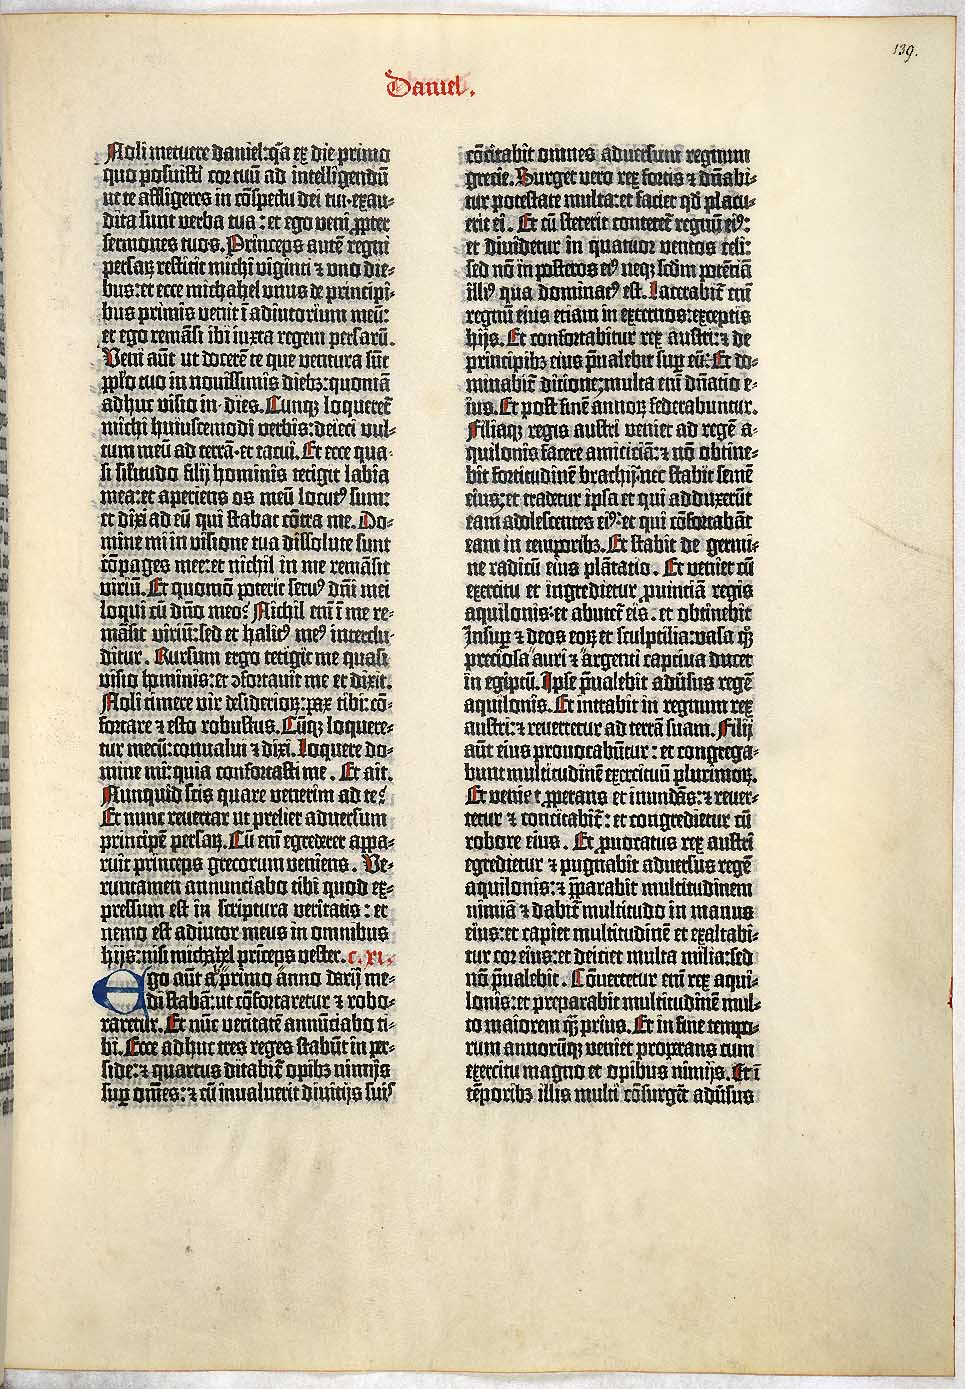 139.
Daniel.
Noli metuere daniel: q̄a ex die primo
quo posuisti cor tuū ad intelligendū
ut te affligeres in cōspectu dei tui·exau-
dita sunt verba tua: et ego veni ꝓpter
sermones tuos. Princeps autē regni
persaꝝ restitit michi viginti ⁊ uno die-
bus: et ecce michahel unus de principi-
bus primis venit ī adiutorium meū:
et ego remāsi ibi iuxta regem persarū.
Veni aūt ut docerē te que ventura sūt
pp̄lo tuo in novissimis diebꝫ: quoniā
adhuc visio in dies. Cunqꝫ loqueret̄
michi huiuscemodi verbis: deieci vul-
tum meū ad terrā·et tacui. Et ecce qua-
si sil̄itudo filij hominis tetigit labia
mea: et aperiens os meū locutꝰ sum:
et dixi ad eū qui stabat cōtra me. Do-
mine mi in visione tua dissolute sunt
cōpages mee: et nichil in me remāsit
viriū. Et quomō poterit servꝰ dn̄i mei
loqui cū dn̄o meo? Nichil em̄ ī me re-
māsit viriū: sed et halitꝰ meꝰ interclu-
ditur. Rursum ergo tetigit me quasi
visio hominis: et ↄfortavit me et dixit.
Noli timere vir desiderioꝝ: pax tibi: cō-
fortare ⁊ esto robustus. Cūqꝫ loquere-
tur mecū: convalui ⁊ dixi. Loquere do-
mine mi: quia confortasti me. Et ait.
Nunquid scis quare venerim ad te?
Et nunc revertar ut prelier adversum
principē persaꝝ. Cū em̄ egrederer appa-
ruit princeps grecorum veniens. Ve-
runtamen annunciabo tibi quod ex-
pressum est in scriptura veritatis: et
nemo est adiutor meus in omnibus
hijs: nisi michahel prīceps vester. c. xi.
Ego aūt a primo anno darij me-
di stabā: ut cōfortaretur ⁊ robo-
raretur. Et nūc veritatē annūciabo ti-
bi. Ecce adhuc tres reges stabūt in per-
side: ⁊ quartus ditabit̄ opibꝫ nimijs
sup̄ om̄es: ⁊ cū invaluerit divitijs suis
cōcitabit omnes adversum regnum
grecie. Surget vero rex fortis ⁊ dn̄abi-
tur potestate multa: et faciet qđ placu-
erit ei. Et cū steterit conteret̄ regnū eiꝰ:
et dividetur in quatuor ventos celi:
sed nō in posteros eiꝰ neqꝫ scđm potētiā
illiꝰ qua dominatꝰ est. Lacerabit̄ em̄
regnū eius etiam in externos: exceptis
hijs. Et confortabitur rex austri: ⁊ de
principibꝫ eius p̄valebit sup̄ eū: Et do-
minabit̄ ditione: multa em̄ dn̄atio e-
ius. Et post finē annoꝝ federabuntur.
Filiaqꝫ regis austri veniet ad regē a-
quilonis facere amiciciā: ⁊ nō obtine-
bit fortitudinē brachij: nec stabit semē
eius: et tradetur ipsa et qui adduxerūt
eam adolescentes eiꝰ: et qui cōfortabāt
eam in temporibꝫ. Et stabit de germi-
ne radicū eius plātatio. Et veniet cū
exercitu et ingredietur ꝓvinciā regis
aquilonis: et abutet̄ eis. et obtinebit
Insup̄ ⁊ deos eoꝝ et sculptilia: vasa qꝫ
preciosa auri ⁊ argenti captiva ducet
in egiptū. Ipse p̄valebit adūsus regē
aquilonis. Et intrabit in regnum rex
austri: ⁊ revertetur ad terrā suam. Filij
aūt eius provocabūtur: et congrega-
bunt multitudinē exercituū plurimoꝝ.
Et veniet ꝓperans et inundās: ⁊ rever-
tetur ⁊ concitabit̄: et congredietur cū
robore eius. Et ꝓvocatus rex austri
egredietur ⁊ pugnabit adversus regē
aquilonis: ⁊ p̄parabit multitudinem
nimiā ⁊ dabit̄ multitudo in manus
eius: et capiet multitudinē et exaltabi-
tur cor eius: et deiciet multa milia: sed
nō p̄valebit. Cōvertetur em̄ rex aqui-
lonis: et preparabit multitudinē mul-
to maiorem q̄ꝫ prius. Et in fine tempo-
rum annorūqꝫ veniet properans cum
exercitu magno et opibus nimijs. Et ī
tēporibꝫ illis multi cōsurgēt adūsus